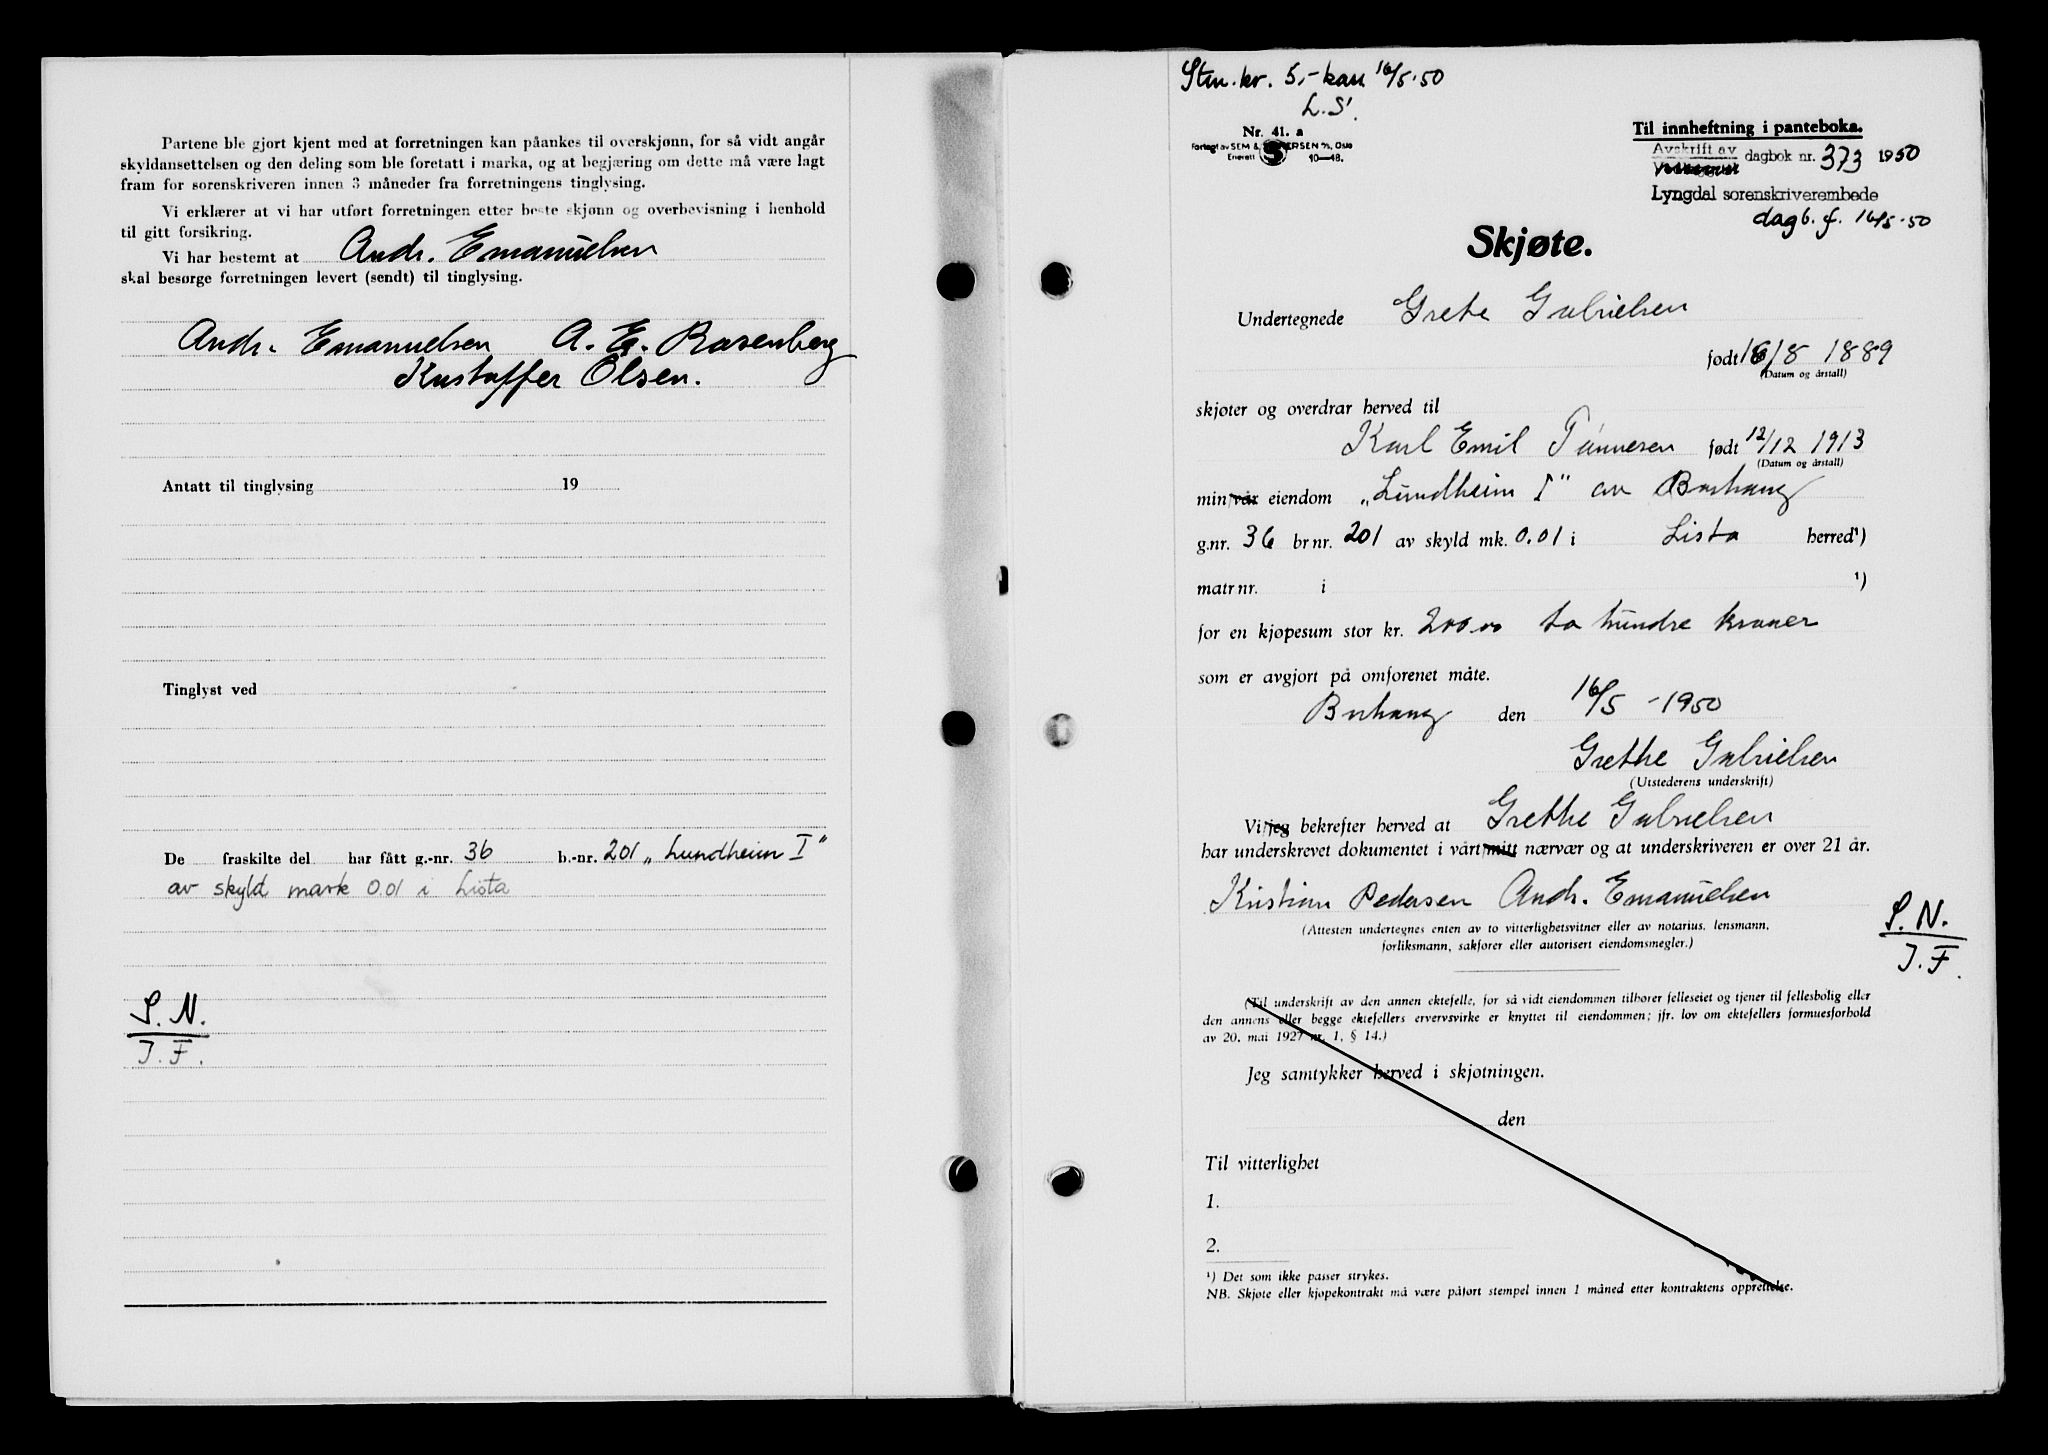 Partene ble gjort kjent med at forretningen kan påankes til overskjønn, for så vidt angår
skyldansettelsen og den deling som ble foretatt i marka, og at begjæring om dette må være lagt
fram for sorenskriveren innen 3 måneder fra forretningens tinglysing.
Vi erklærer at vi har utført forretningen etter beste skjønn og overbevisning i henhold
til gitt forsikring.
Vi har bestemt at Andr. Emanuelsen
skal besørge forretningen levert (sendt) til tinglysing.
Andr. Emanuelsen A. E. Rosenberg
Kristoffer Olsen.
Antatt til tinglysing 19
Tinglyst ved
De fraskilte del har fått g.-nr. 36 b.-nr. 201 „Lundheim I"
av skyld mark 0.01 i Lista
S. N.
J. F.
Stm. kr. 5,- kass. 16/5-50
L. S.
Nr. 41. a
Forlagt av SEM & STENERSEN A/S, Oslo
Enerett 10—48.
Til innheftning i panteboka.
Avskrift av
dagbok nr. 373 1950
Lyngdal sorenskriverembede
dagb. f. 16/5-50
Skjøte.
Undertegnede Grete Gabrielsen
født 16/8 1889
(Datum og årstall)
skjøter og overdrar herved til
Karl Emil Tønnesen født 12/12 1913
(Datum og årstall)
min/vår eiendom „Lundheim I" av Borhaug
g.nr. 36 br nr. 201 av skyld mk. 0.01 i Lista herred¹)
matr nr. i ¹)
for en kjøpesum stor kr. 200.00 to hundre kroner
som er avgjort på omforenet måte.
Borhaug den 16/5 -1950
Grethe Gabrielsen
(Utstederens underskrift)
Vi/jeg bekrefter herved at Grethe Gabrielsen
har underskrevet dokumentet i vårt/mitt nærvær og at underskriveren er over 21 år.
Kristian Pedersen Andr. Emanuelsen
(Attesten undertegnes enten av to vitterlighetsvitner eller av notarius, lensmann,
forliksmann, sakfører eller autorisert eiendomsmegler.)
S. N.
J. F.
(Til underskrift av den annen ektefelle, for så vidt eiendommen tilhører felleseiet og tjener til fellesbolig eller
den annens eller begge ektefellers ervervsvirke er knyttet til eiendommen; jfr. lov om ektefellers formuesforhold
av 20. mai 1927 nr. 1, § 14.)
Jeg samtykker herved i skjøtningen.
den
Til vitterlighet
1.
2.
¹) Det som ikke passer strykes.
NB. Skjøte eller kjøpekontrakt må være påført stempel innen 1 måned etter kontraktens opprettelse.